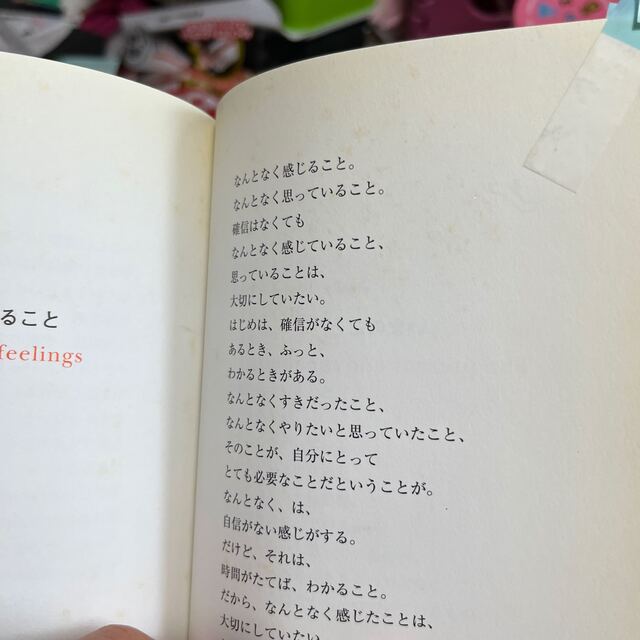 ること
feelings
なんとなく感じること。
なんとなく思っていること。
確信はなくても
なんとなく感じていること、
思っていることは、
大切にしていたい。
はじめは、確信がなくても
あるとき、ふっと、
わかるときがある。
なんとなくすきだったこと、
なんとなくやりたいと思っていたこと、
そのことが、自分にとって
とても必要なことだということが。
なんとなく、は、
自信がない感じがする。
だけど、それは、
時間がたてば、わかること。
だから、なんとなく感じたことは、
大切にしていたい